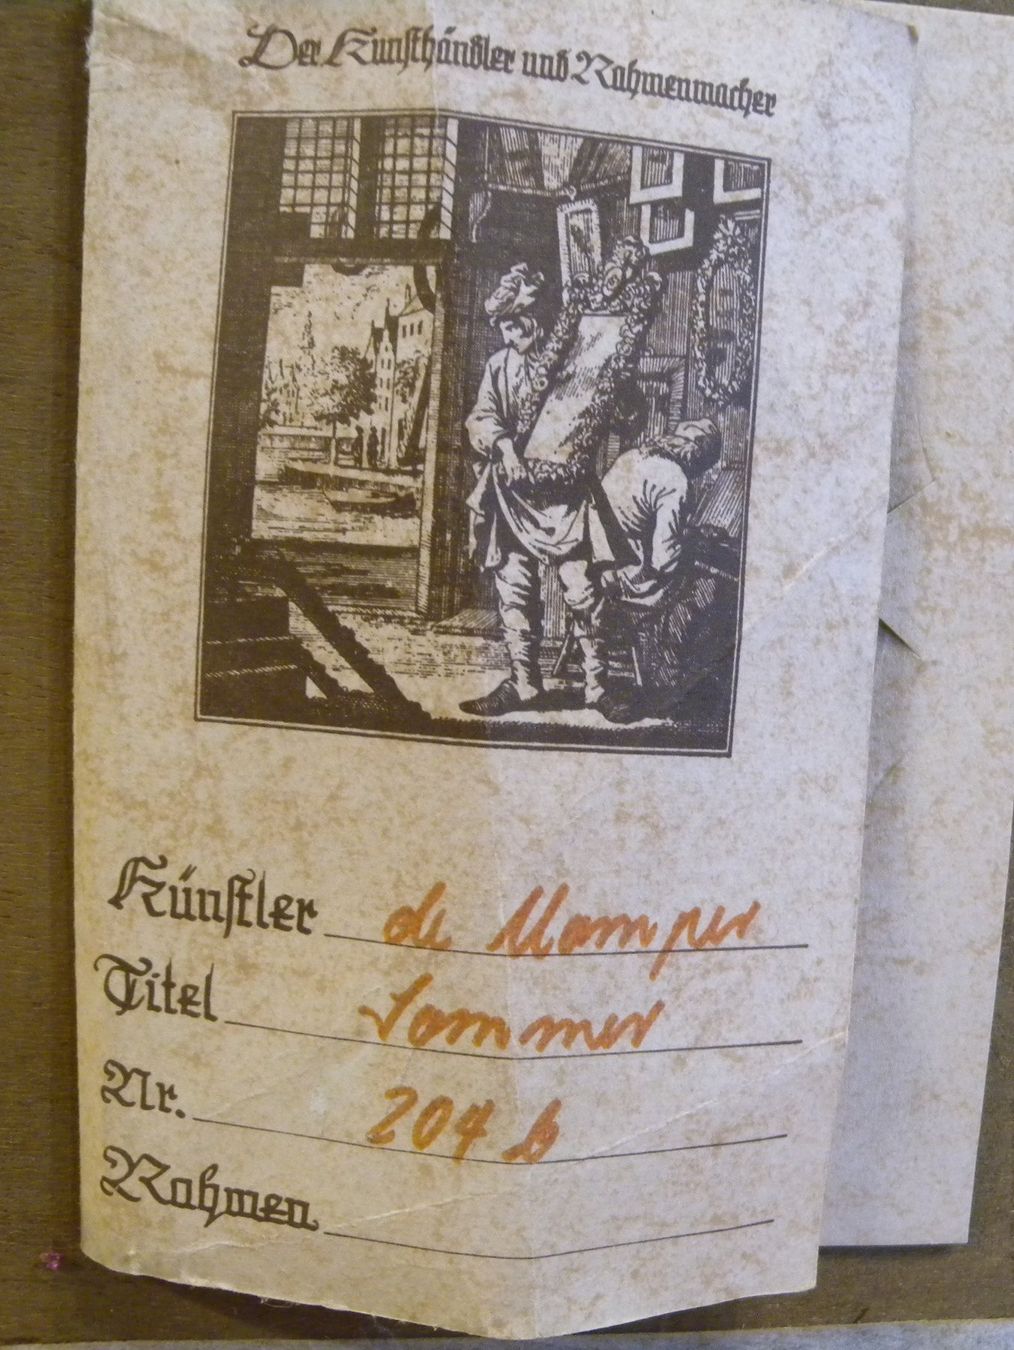 Der Kunsthändler und Rahmenmacher
Künstler de Momper
Titel Sommer
Nr. 204 b
Rahmen